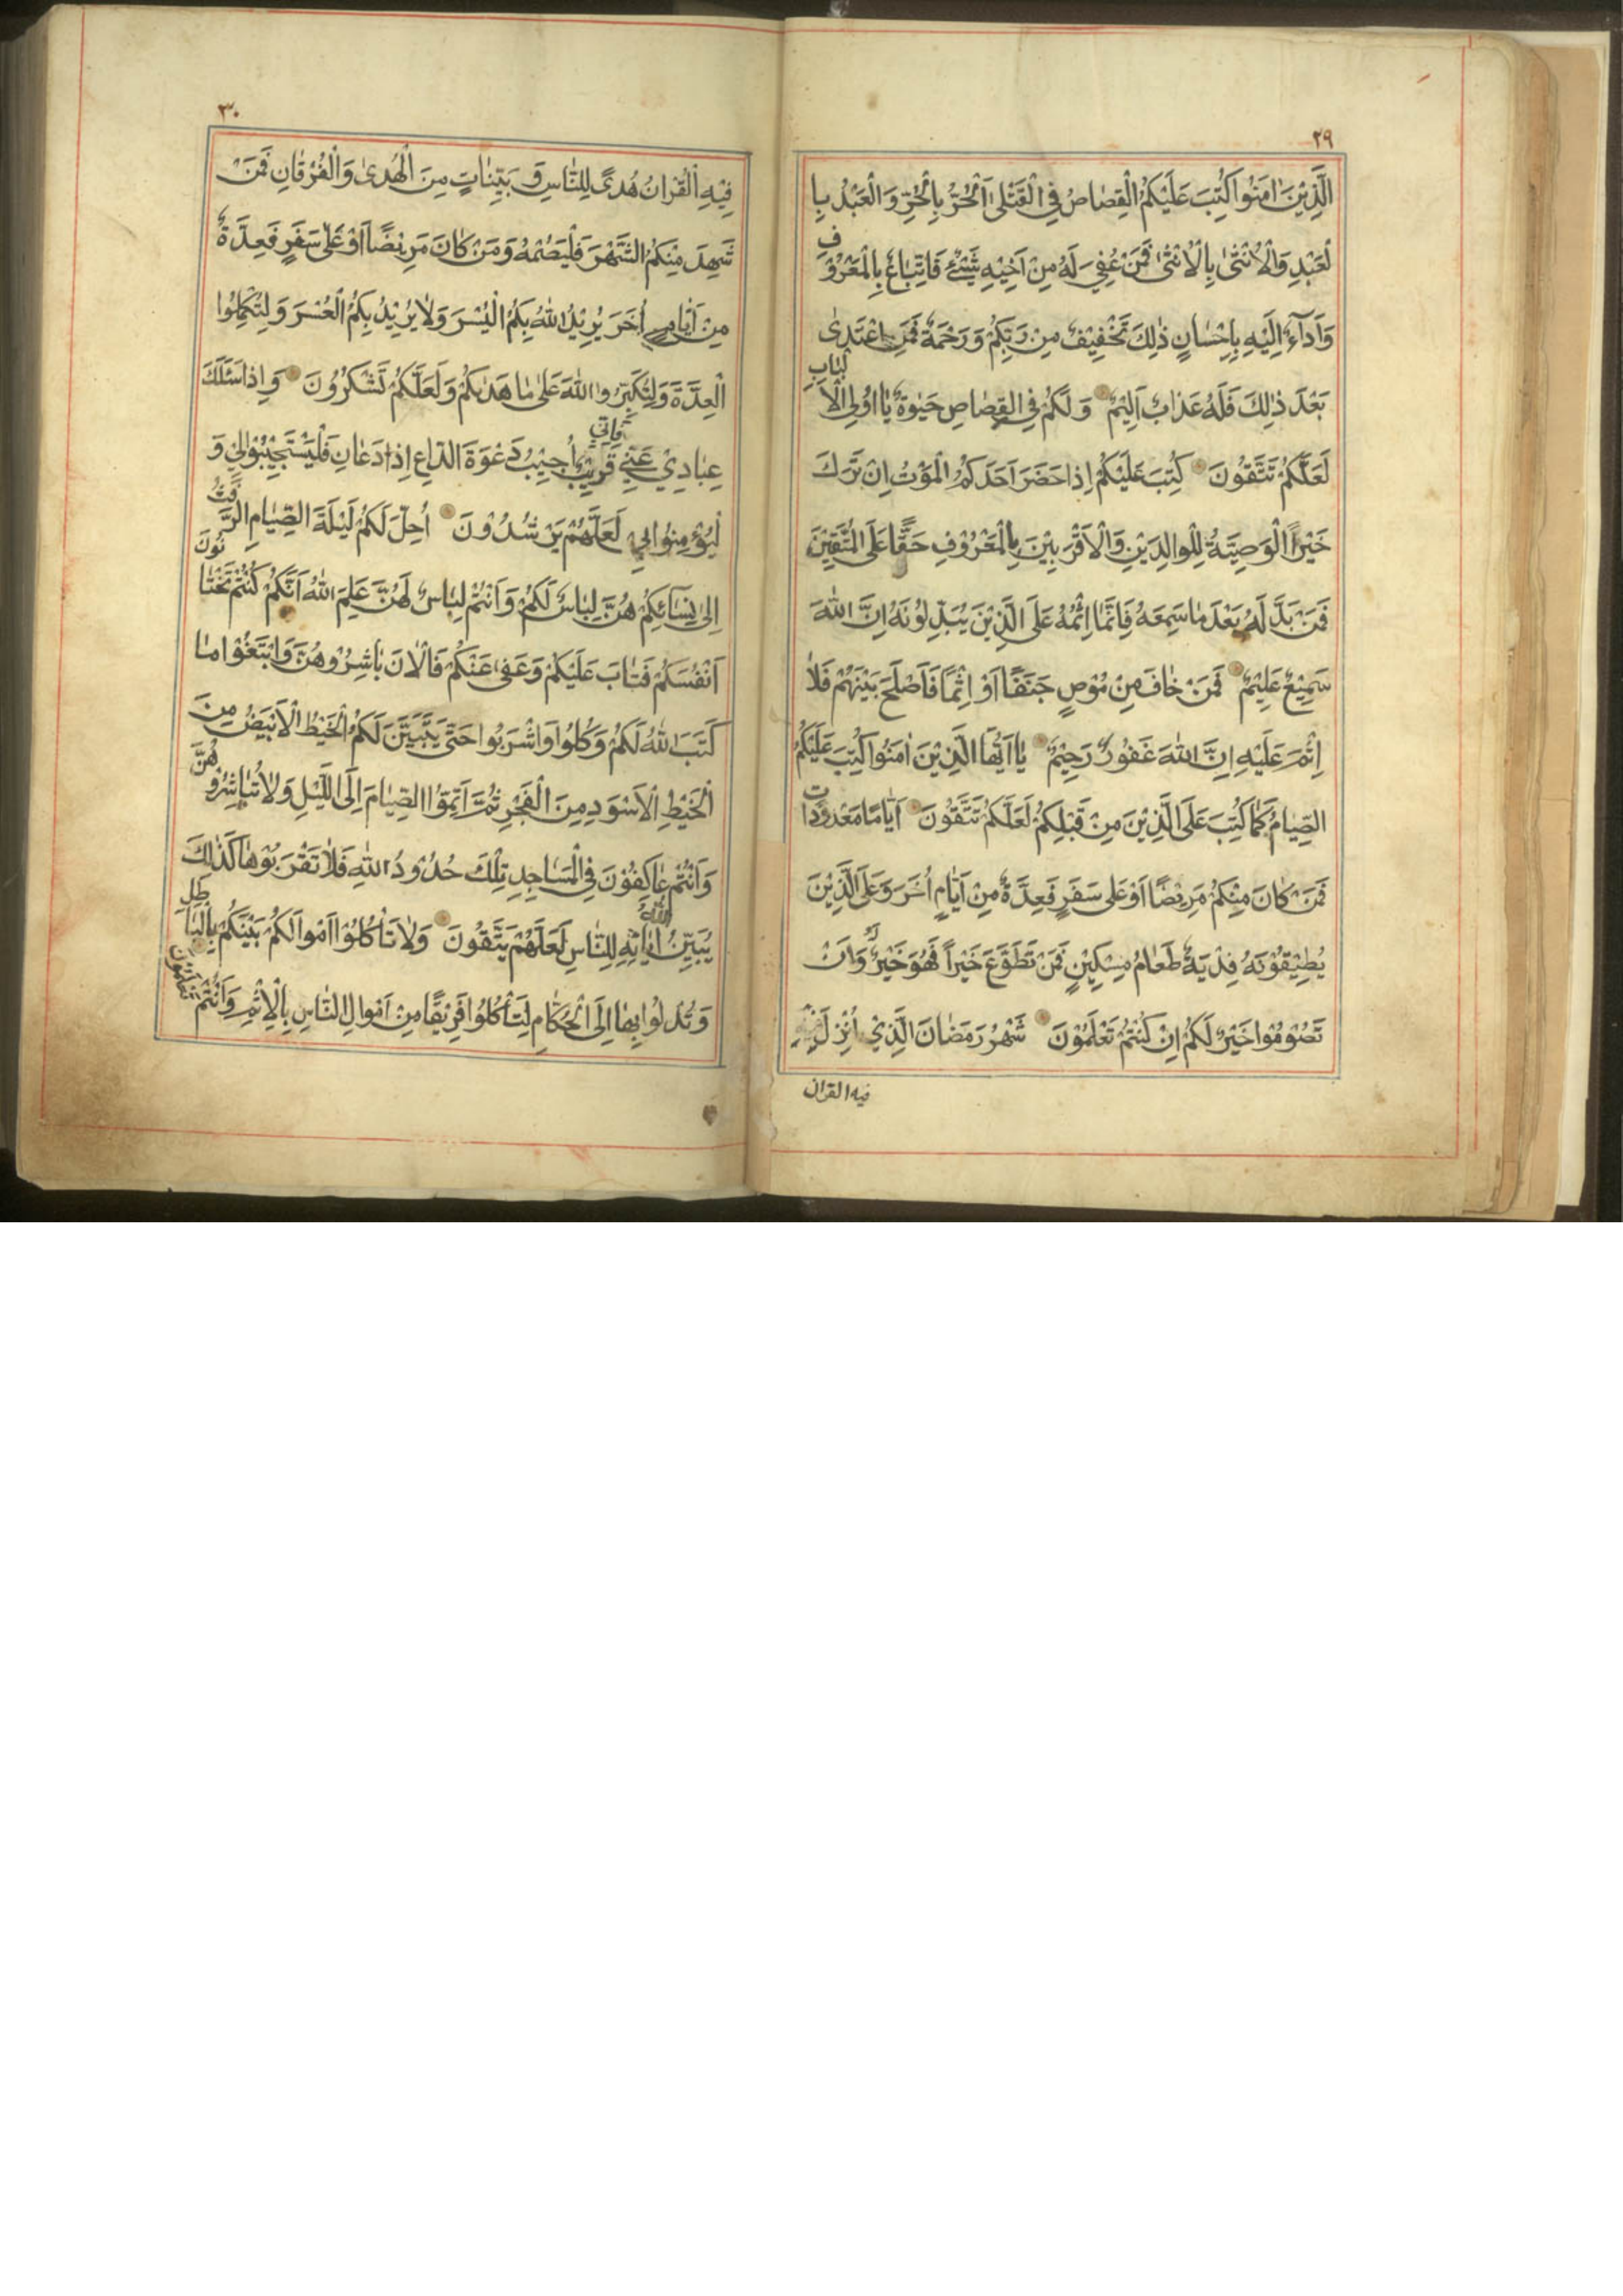 ٢٩
الَّذِيْنَ اٰمَنُوا كُتِبَ عَلَيْكُمُ الْقِصَاصُ فِي الْقَتْلٰى اَلْحُرُّ بِالْحُرِّ وَالْعَبْدُ بِا
لْعَبْدِ وَالْاُنْثٰى بِالْاُنْثٰى فَمَنْ عُفِيَ لَهُ مِنْ اَخِيْهِ شَيْءٌ فَاتِّبَاعٌ بِالْمَعْرُوْفِ
وَاَدَآءٌ اِلَيْهِ بِاِحْسَانٍ ذٰلِكَ تَخْفِيْفٌ مِنْ رَبِّكُمْ وَرَحْمَةٌ فَمَنِ اعْتَدٰى
بَعْدَ ذٰلِكَ فَلَهُ عَذَابٌ اَلِيْمٌ وَلَكُمْ فِي الْقِصَاصِ حَيٰوةٌ يَا اُولِي الْاَلْبَابِ
لَعَلَّكُمْ تَتَّقُوْنَ كُتِبَ عَلَيْكُمْ اِذَا حَضَرَ اَحَدَكُمُ الْمَوْتُ اِنْ تَرَكَ
خَيْرًا الْوَصِيَّةُ لِلْوَالِدَيْنِ وَالْاَقْرَبِيْنَ بِالْمَعْرُوْفِ حَقًّا عَلَى الْمُتَّقِيْنَ
فَمَنْ بَدَّلَهُ بَعْدَ مَا سَمِعَهُ فَاِنَّمَا اِثْمُهُ عَلَى الَّذِيْنَ يُبَدِّلُوْنَهُ اِنَّ اللّٰهَ
سَمِيْعٌ عَلِيْمٌ فَمَنْ خَافَ مِنْ مُوْصٍ جَنَفًا اَوْ اِثْمًا فَاَصْلَحَ بَيْنَهُمْ فَلَا
اِثْمَ عَلَيْهِ اِنَّ اللّٰهَ غَفُوْرٌ رَحِيْمٌ يَا اَيُّهَا الَّذِيْنَ اٰمَنُوا كُتِبَ عَلَيْكُمُ
الصِّيَامُ كَمَا كُتِبَ عَلَى الَّذِيْنَ مِنْ قَبْلِكُمْ لَعَلَّكُمْ تَتَّقُوْنَ اَيَّامًا مَعْدُوْدَاتٍ
فَمَنْ كَانَ مِنْكُمْ مَرِيْضًا اَوْ عَلٰى سَفَرٍ فَعِدَّةٌ مِنْ اَيَّامٍ اُخَرَ وَعَلَى الَّذِيْنَ
يُطِيْقُوْنَهُ فِدْيَةٌ طَعَامُ مِسْكِيْنٍ فَمَنْ تَطَوَّعَ خَيْرًا فَهُوَ خَيْرٌ لَهُ وَاَنْ
تَصُوْمُوْا خَيْرٌ لَكُمْ اِنْ كُنْتُمْ تَعْلَمُوْنَ شَهْرُ رَمَضَانَ الَّذِيْ اُنْزِلَ
فيه القران
٣٠
فِيْهِ الْقُرْانُ هُدًى لِلنَّاسِ وَبَيِّنَاتٍ مِنَ الْهُدٰى وَالْفُرْقَانِ فَمَنْ
شَهِدَ مِنْكُمُ الشَّهْرَ فَلْيَصُمْهُ وَمَنْ كَانَ مَرِيْضًا اَوْ عَلٰى سَفَرٍ فَعِدَّةٌ
مِنْ اَيَّامٍ اُخَرَ يُرِيْدُ اللّٰهُ بِكُمُ الْيُسْرَ وَلَا يُرِيْدُ بِكُمُ الْعُسْرَ وَلِتُكْمِلُوا
الْعِدَّةَ وَلِتُكَبِّرُوا اللّٰهَ عَلٰى مَا هَدٰىكُمْ وَلَعَلَّكُمْ تَشْكُرُوْنَ وَاِذَا سَئَلَكَ
عِبَادِيْ عَنِّي فَاِنِّي قَرِيْبٌ اُجِيْبُ دَعْوَةَ الدَّاعِ اِذَا دَعَانِ فَلْيَسْتَجِيْبُوْا لِيْ وَ
لْيُؤْمِنُوْا بِيْ لَعَلَّهُمْ يَرْشُدُوْنَ اُحِلَّ لَكُمْ لَيْلَةَ الصِّيَامِ الرَّفَثُ
اِلٰى نِسَائِكُمْ هُنَّ لِبَاسٌ لَكُمْ وَاَنْتُمْ لِبَاسٌ لَهُنَّ عَلِمَ اللّٰهُ اَنَّكُمْ كُنْتُمْ تَخْتَانُوْنَ
اَنْفُسَكُمْ فَتَابَ عَلَيْكُمْ وَعَفٰى عَنْكُمْ فَالْاٰنَ بَاشِرُوْهُنَّ وَابْتَغُوْا مَا
كَتَبَ اللّٰهُ لَكُمْ وَكُلُوْا وَاشْرَبُوا حَتّٰى يَتَبَيَّنَ لَكُمُ الْخَيْطُ الْاَبْيَضُ مِنَ
الْخَيْطِ الْاَسْوَدِ مِنَ الْفَجْرِ ثُمَّ اَتِمُّوا الصِّيَامَ اِلَى اللَّيْلِ وَلَا تُبَاشِرُوْهُنَّ
وَاَنْتُمْ عَاكِفُوْنَ فِي الْمَسَاجِدِ تِلْكَ حُدُوْدُ اللّٰهِ فَلَا تَقْرَبُوْهَا كَذٰلِكَ
يُبَيِّنُ اللّٰهُ اٰيَاتِهِ لِلنَّاسِ لَعَلَّهُمْ يَتَّقُوْنَ وَلَا تَأْكُلُوْا اَمْوَالَكُمْ بَيْنَكُمْ بِالْبَاطِلِ
وَتُدْلُوْا بِهَا اِلَى الْحُكَّامِ لِتَأْكُلُوْا فَرِيْقًا مِنْ اَمْوَالِ النَّاسِ بِالْاِثْمِ وَاَنْتُمْ تَعْلَمُوْنَ